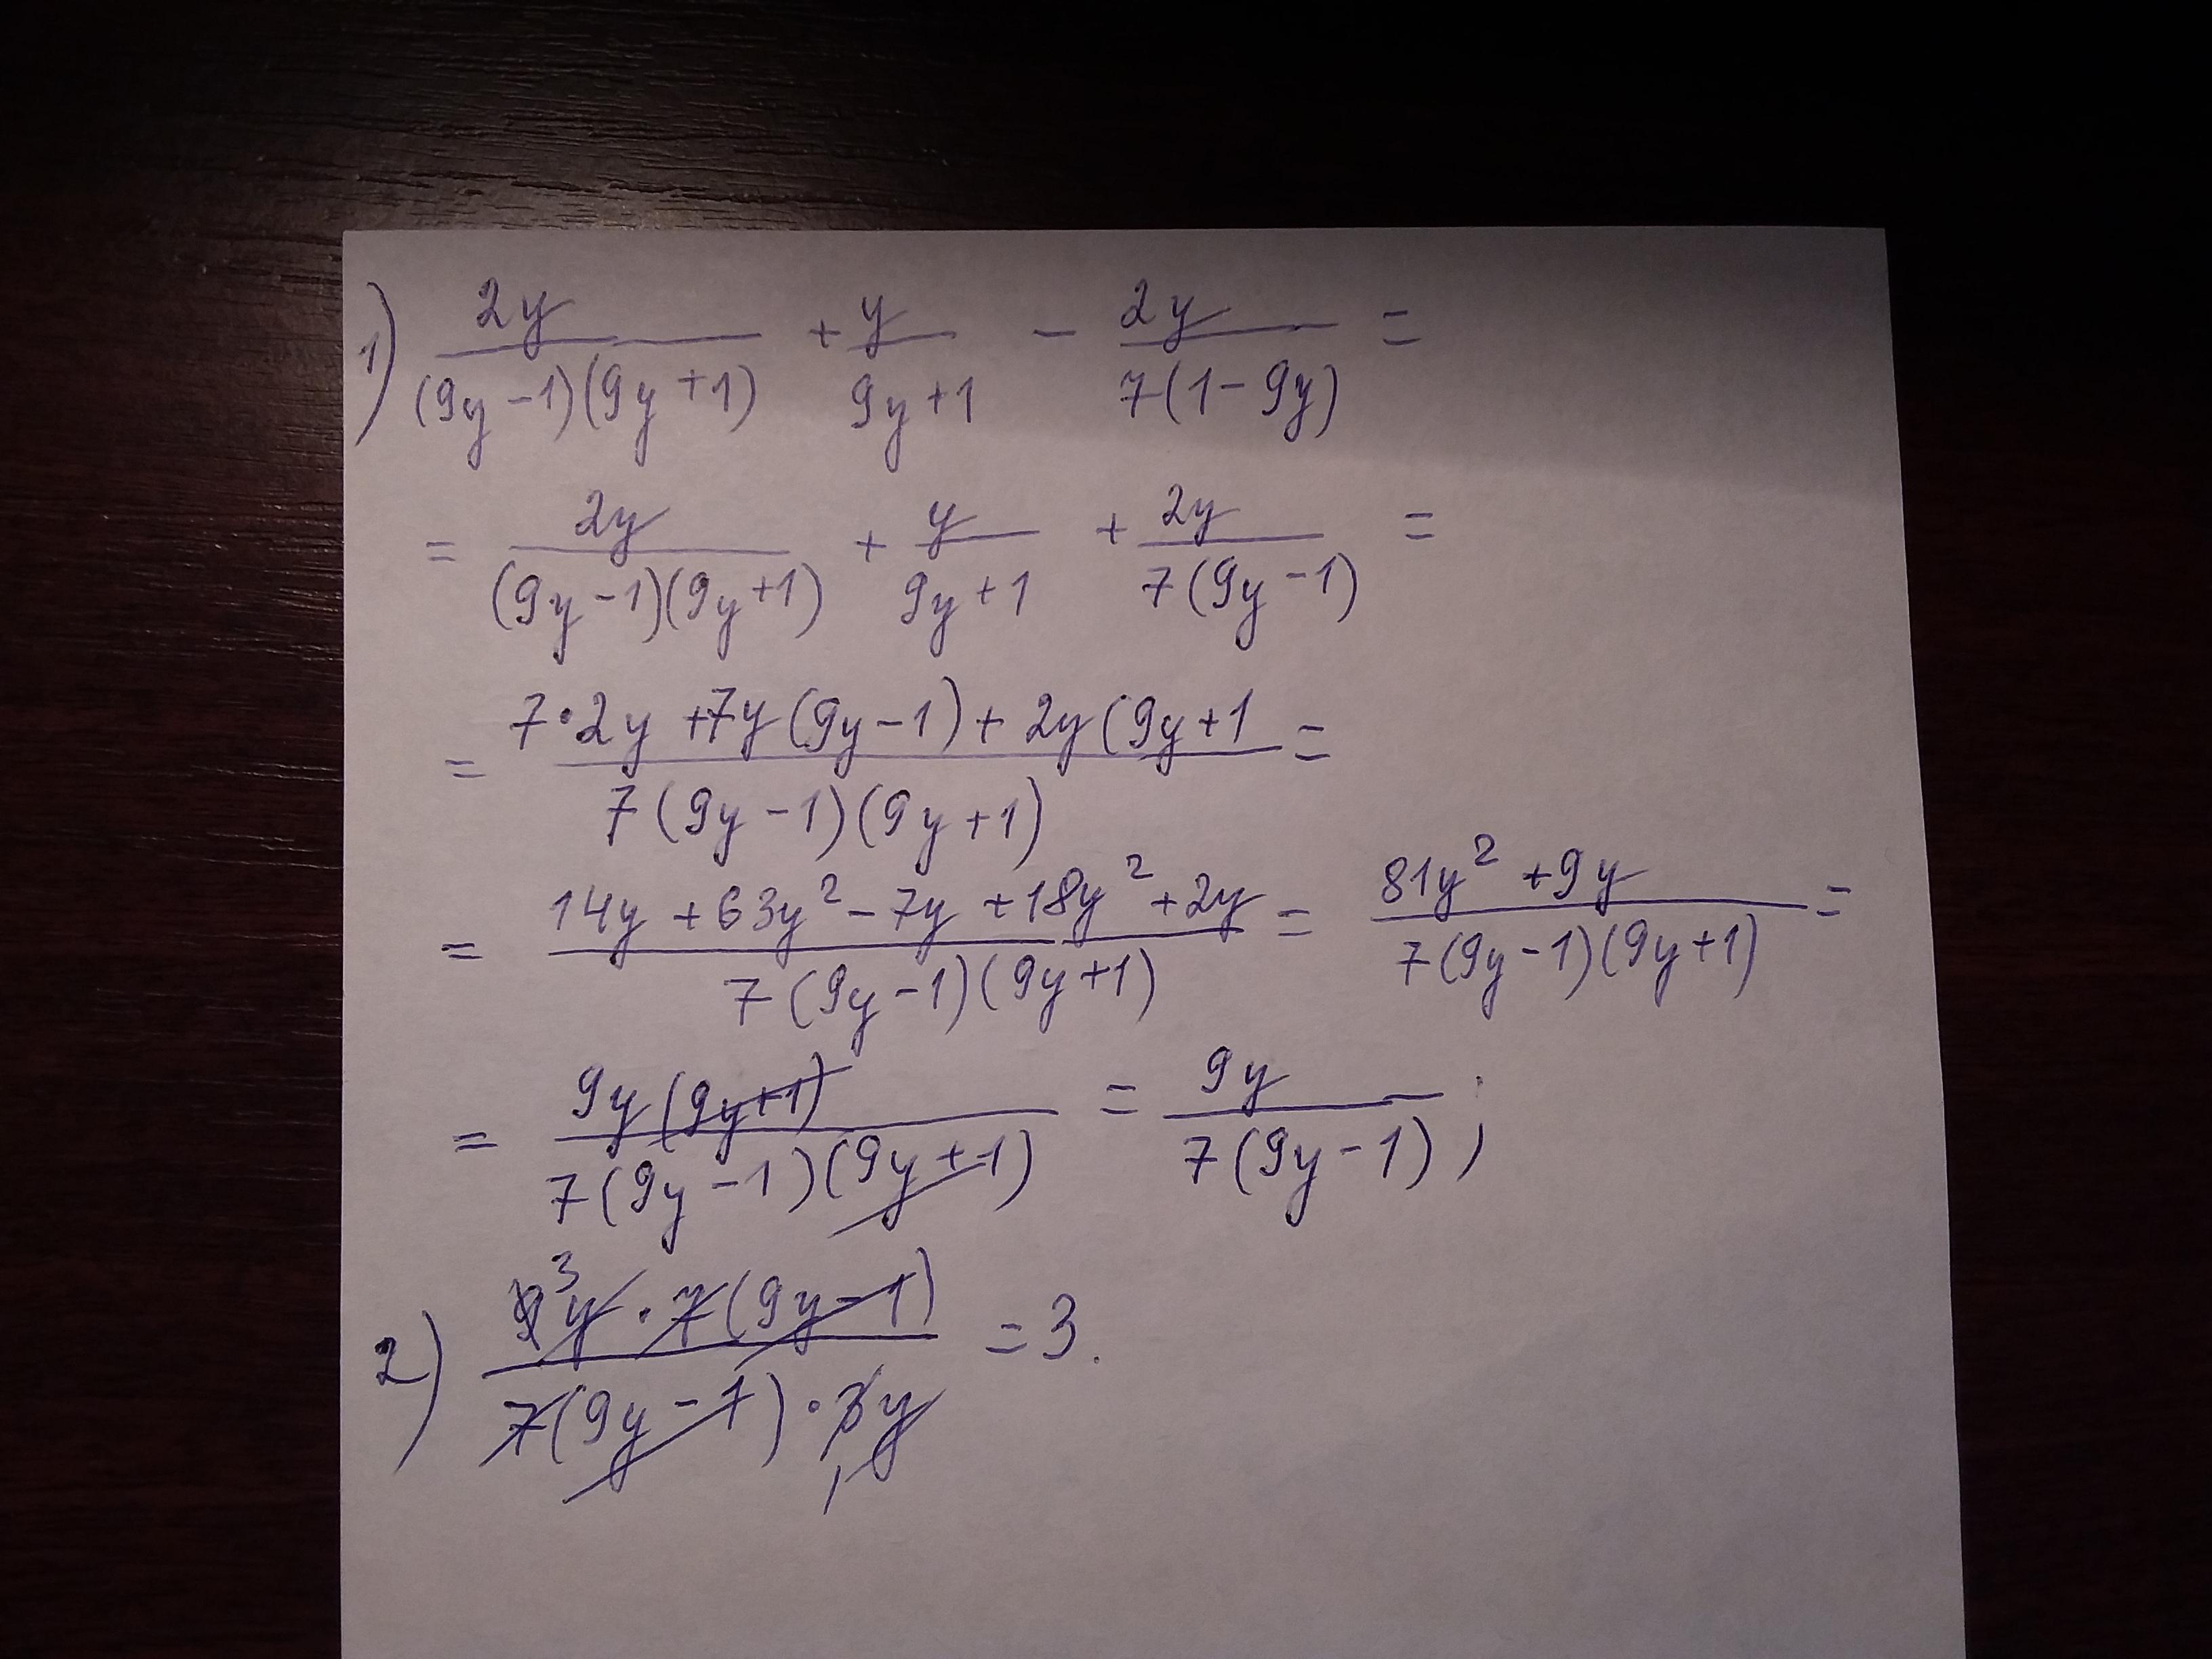 1) 2y/((9y-1)(9y+1)) + y/(9y+1) - 2y/(7(1-9y)) =
= 2y/((9y-1)(9y+1)) + y/(9y+1) + 2y/(7(9y-1)) =
= (7·2y+7y(9y-1)+2y(9y+1)/(7(9y-1)(9y+1)) =
= (14y+63y²-7y+18y²+2y)/(7(9y-1)(9y+1)) = (81y²+9y)/(7(9y-1)(9y+1)) =
= 9y(9y+1)/(7(9y-1)(9y+1)) = 9y/(7(9y-1));
2) 9³y·7(9y-1)/(7(9y-1)·3₁y) = 3.